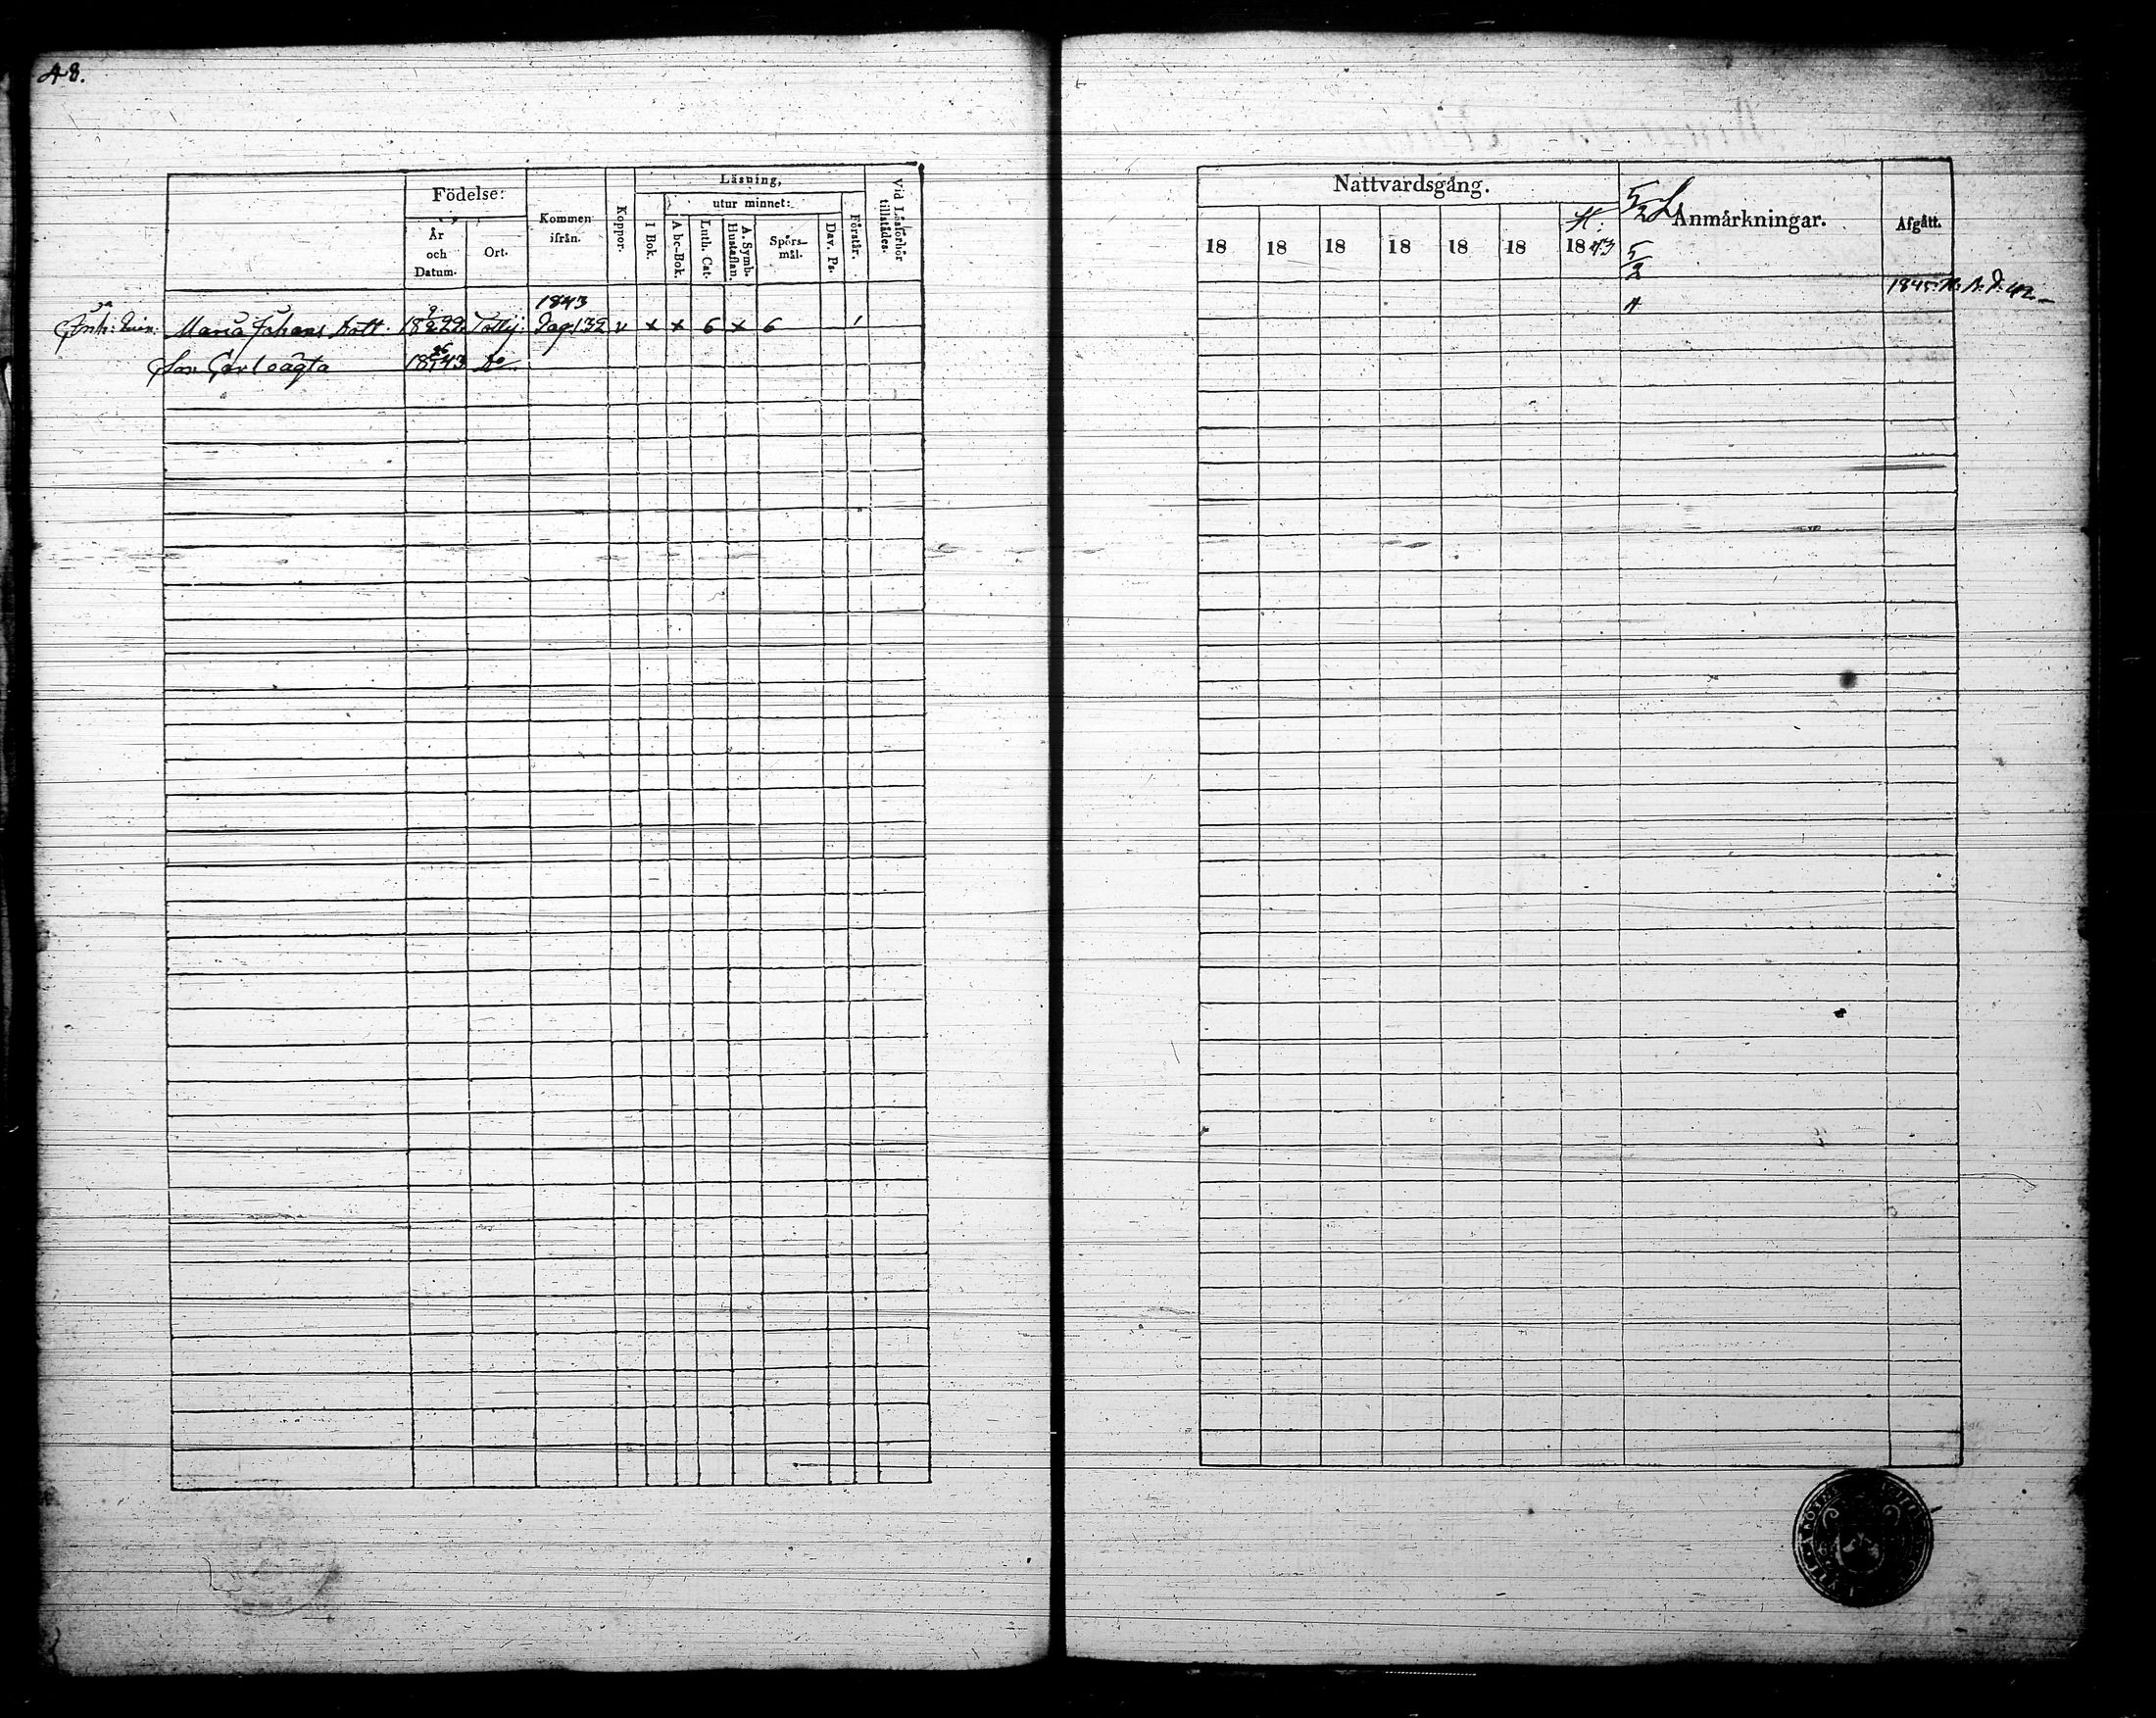 48.
Födelse:
År
och
Datum.
Ort.
Kommen
ifrån.
Koppor.
Läsning,
I Bok.
utur minnet:
A bc-Bok.
Luth. Cat.
A. Symb.
Hustaflan.
Spörs-
mål.
Dav. Ps.
Förstår.
Vid Läsförhör
tillstädes.
1843
Maria Johans Dott. 18 9/2 22 Tellij: Pag: 132 v x x 6 x 6 1
Son Carl oägta 18 26 43 do
Nattvardsgång.
18 18 18 18 18 18 18 43
H.
5/2
Anmärkningar.
Afgått.
5/2
1845